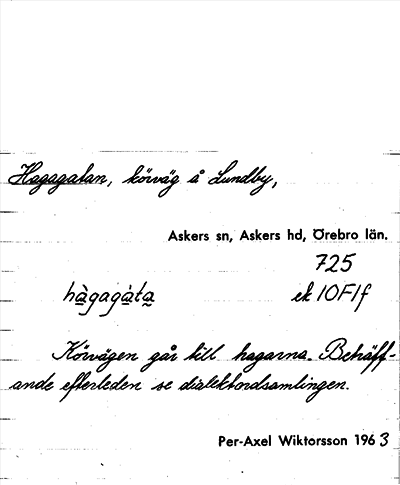 Hagagatan, körväg å Lundby,
Askers sn, Askers hd, Örebro län.
725
hàgagáta ek 10F1f
Körvägen går till hagarna. Beträff-
ande efterleden se dialektordsamlingen.
Per-Axel Wiktorsson 1963